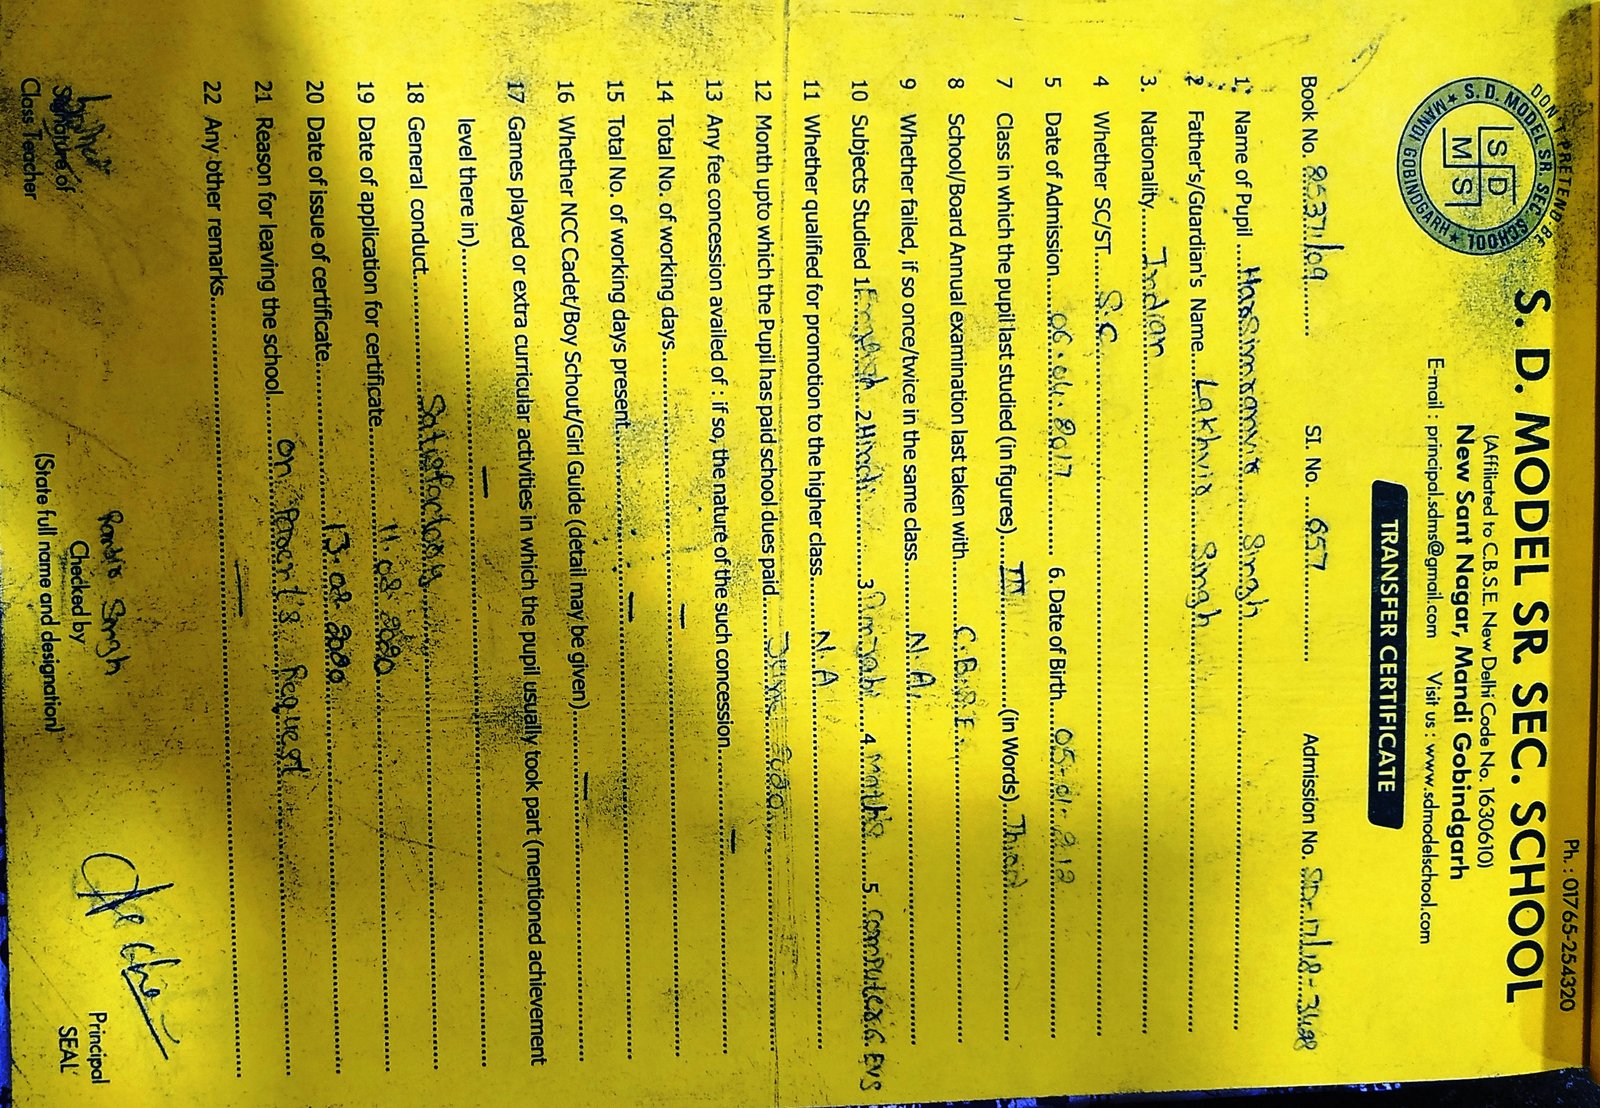 Ph. : 01765-254320
DON'T PRETEND BE
S. D. MODEL SR. SEC. SCHOOL
MANDI GOBINDGARH
S D
M S
S. D. MODEL SR. SEC. SCHOOL
(Affiliated to C.B.S.E. New Delhi Code No. 1630610)
New Sant Nagar, Mandi Gobindgarh
E-mail : principal.sdms@gmail.com Visit us : www.sdmodelschool.com
TRANSFER CERTIFICATE
Book No. 8537/09 Sl. No. 657 Admission No. SD-17/18-3498
1. Name of Pupil Harsimranvir Singh
2 Father's/Guardian's Name Lakhvir Singh
3. Nationality Indian
4 Whether SC/ST S.C
5 Date of Admission 06.04.2017 6. Date of Birth 05.01.212
7 Class in which the pupil last studied (in figures) III (in Words) Third
8 School/Board Annual examination last taken with C.B.S.E.
9 Whether failed, if so once/twice in the same class N.A.
10 Subjects Studied 1. English 2 Hindi 3 Punjabi 4 Maths 5 Computer 6. EVS
11 Whether qualified for promotion to the higher class N.A
12 Month upto which the Pupil has paid school dues paid 2020
13 Any fee concession availed of : if so, the nature of the such concession —
14 Total No. of working days —
15 Total No. of working days present —
16 Whether NCC Cadet/Boy Schout/Girl Guide (detail may be given) —
17 Games played or extra curricular activities in which the pupil usually took part (mentioned achievement
level there in) —
18 General conduct Satisfactory
19 Date of application for certificate 11.08.2020
20 Date of issue of certificate 13.08.2020
21 Reason for leaving the school on Parent's Request
22 Any other remarks —
Singh
Signature of Checked by Principal
Class Teacher (State full name and designation) SEAL